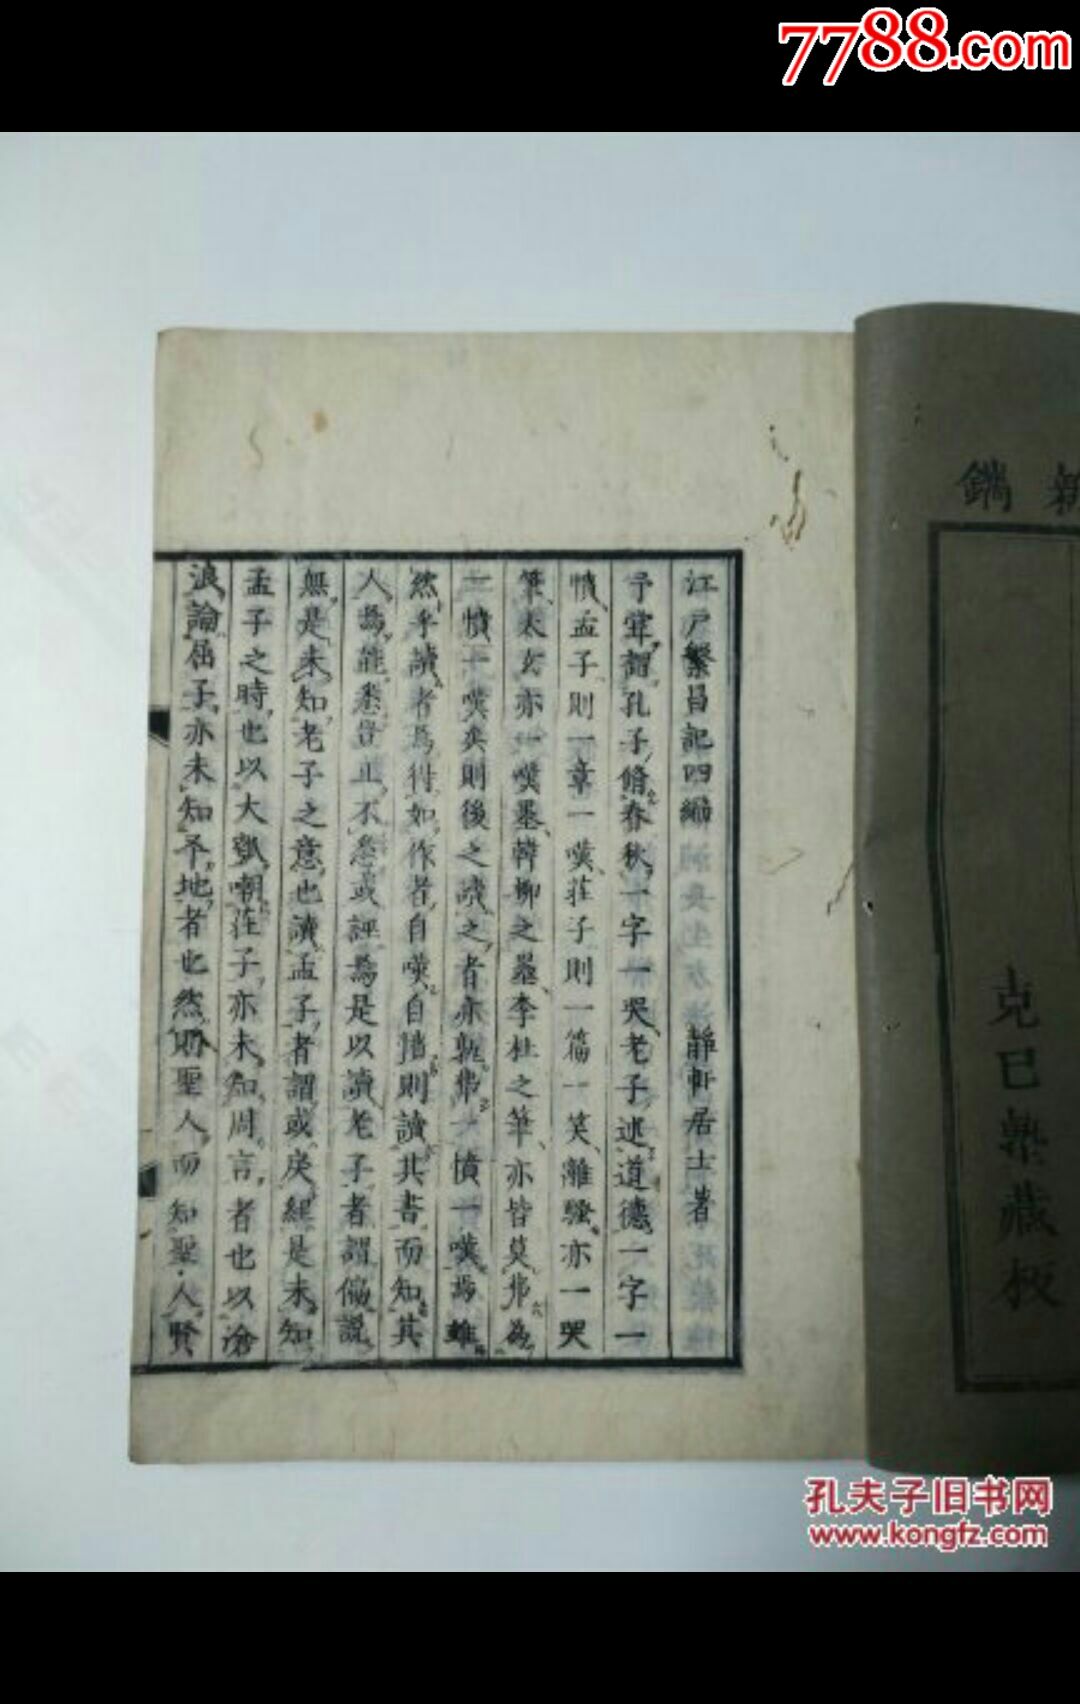 7788.com
新鐫
克己塾藏板
江戶繁昌記四編
靜軒居士著
予嘗謂孔子脩春秋一字一哭老子述道德一字一
憤孟子則一章一嘆莊子則一篇一笑離騷亦一哭
筆太玄亦一嘆墨韓柳之墨李杜之筆亦皆莫弗為
一憤一嘆矣則後之讀之者亦孰弗一憤一嘆焉雖
然乎讀者焉得如作者自嘆自
則讀其書而知其
人焉能悉豈止不悉或誣焉是以讀老子者謂偏說
無是未知老子之意也讀孟子者謂或戾經是未知
孟子之時也以大瓠嘲莊子亦未知周言者也以滄
浪論屈子亦未知予地者也然則聖人而知聖人賢
孔夫子旧书网
www.kongfz.com